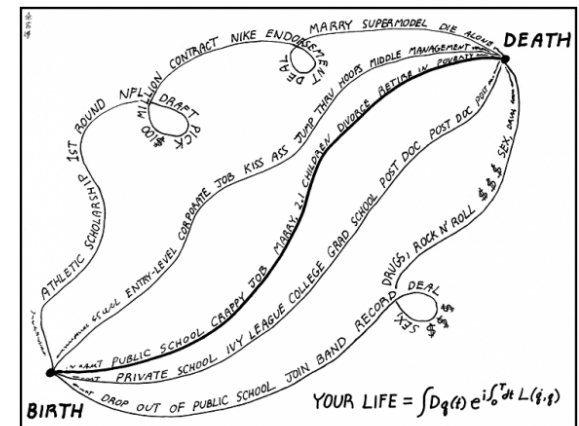 ATHLETIC SCHOLARSHIP 1ST ROUND NFL DRAFT PICK $100 MILLION CONTRACT NIKE ENDORSEMENT DEAL MARRY SUPERMODEL DIE ALONE
ENTRY-LEVEL CORPORATE JOB KISS ASS JUMP THRU HOOPS MIDDLE MANAGEMENT
PUBLIC SCHOOL CRAPPY JOB MARRY, 2.1 CHILDREN DIVORCE RETIRE IN POVERTY
PRIVATE SCHOOL IVY LEAGUE COLLEGE GRAD SCHOOL POST DOC POST DOC POST
DROP OUT OF PUBLIC SCHOOL JOIN BAND RECORD DEAL $$$ $ SEX, DRUGS, ROCK N' ROLL $ $ $ SEX, DRUGS
DEATH
BIRTH
YOUR LIFE = ∫Dq(t) e^{i∫₀ᵀdt L(q̇,q)}